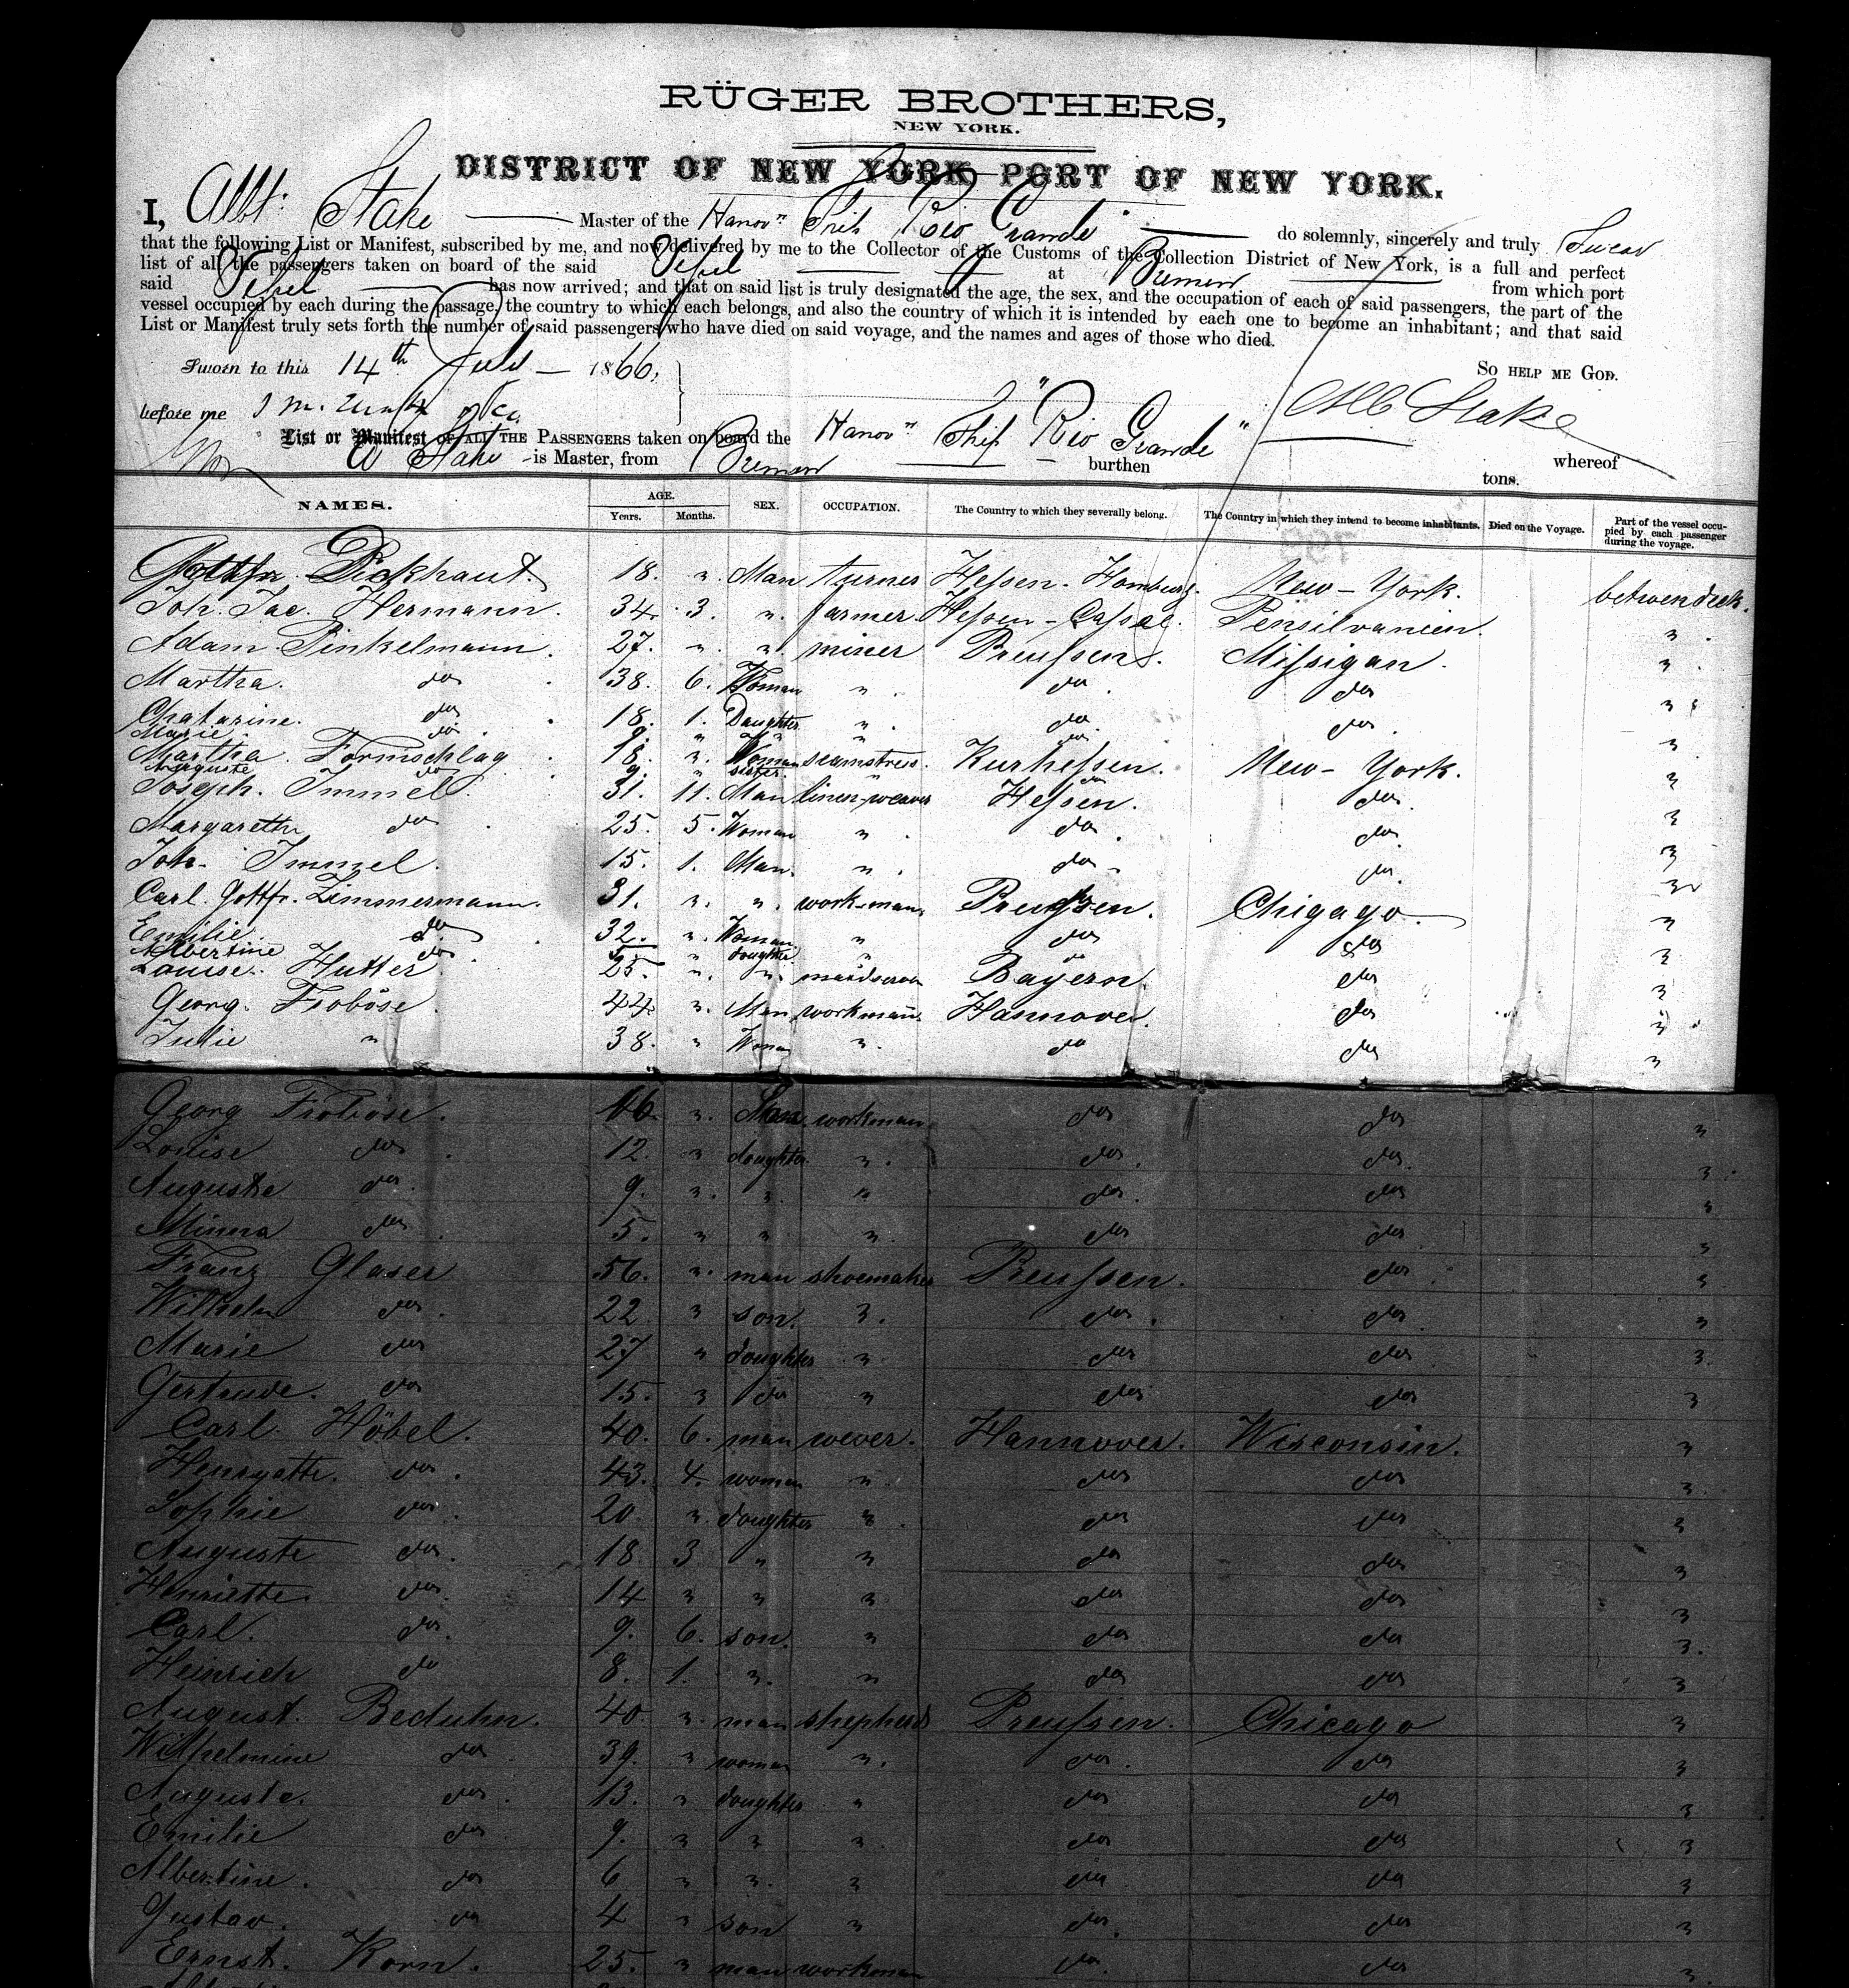 RÜGER BROTHERS,
NEW YORK.
DISTRICT OF NEW YORK PORT OF NEW YORK.
I, Albt. Stake Master of the Hanovn Ship Rio Grande do solemnly, sincerely and truly Swear
that the following List or Manifest, subscribed by me, and now delivered by me to the Collector of the Customs of the Collection District of New York, is a full and perfect
list of all the passengers taken on board of the said Veßel at Bremen from which port
said Veßel has now arrived; and that on said list is truly designated the age, the sex, and the occupation of each of said passengers, the part of the
vessel occupied by each during the passage, the country to which each belongs, and also the country of which it is intended by each one to become an inhabitant; and that said
List or Manifest truly sets forth the number of said passengers who have died on said voyage, and the names and ages of those who died.
So HELP ME GOD.
Sworn to this 14th July 1866,
Alb Stake
before me
List or Manifest OF ALL THE PASSENGERS taken on board the Hanovn Ship "Rio Grande" whereof
Stake is Master, from Bremen burthen tons.
NAMES. AGE. SEX. OCCUPATION. The Country to which they severally belong. The Country in which they intend to become inhabitants. Died on the Voyage. Part of the vessel occupied by each passenger during the voyage.
Years. Months.
Gottfr. Dickhaut. 18. " Man turner Hessen-Homburg. New-York. betwendeck.
Joh. Jac. Hermann. 34. 3. " farmer Hessen-Cassel. Pensilvanien. "
Adam Pinkelmann. 27. " " miner Preussen. Missigan. "
Martha. do 38. 6. Woman " do do "
Chatarine. do 18. 1. Daughter " do. do. "
Marie. do. 9. " " " do
Martha Formschlag 18. " Woman seamstress. Kurhessen. New-York. "
Auguste do 9. " sister. " do
Joseph. Immel. 31. 11. Man linen-weaver Hessen. do. "
Margareth do 25. 5. Woman " do. do. "
Joh. Immel. 15. 1. Man. " do do. "
Carl. Gottfr. Zimmermann. 31. " " workman Preussen. Chigago. "
Emilie do 32. " Woman. " do do "
Albertine do. 5. " doughter " do
Louise. Hutter. 25. " " Bayern. do "
Georg. Froböse. 44. " Man workman. Hannover. do "
Julie " 38. " Woman " do do "
Georg Froböse. 16. " Man. workman do do "
Louise do. 12. " doughter " do. do. "
Auguste do. 9. " " " do. do "
Minna do. 5. " " " do do. "
Franz Glaser 56. " man shoemaker Preussen. do. "
Wilhelm do. 22 " son. " do. do. "
Marie do 27 " doughter " do do. "
Gertrude. do 15. " do " do. do "
Carl. Höbel. 40. 6. man wever. Hannover. Wisconsin. "
Henryette. do. 43. 4. woman " do do "
Sophie do. 20 " doughter " do do "
Auguste do. 18 3 " " do do. "
Henriette. do. 14 " " " do do "
Carl. do. 9. 6. son. " do do "
Heinrich do 8. 1. " " do do "
August. Beduhn. 40. " man shepherd Preussen. Chicago "
Wilhelmine do 39. " woman " do. do "
Auguste. do. 13. " doughter " do do "
Emilie do 9. " " " do do "
Albertine. do 6 " " " do do "
Gustav. do 4 " son " do. do "
Ernst. Korn. 25. " man workman do. do "